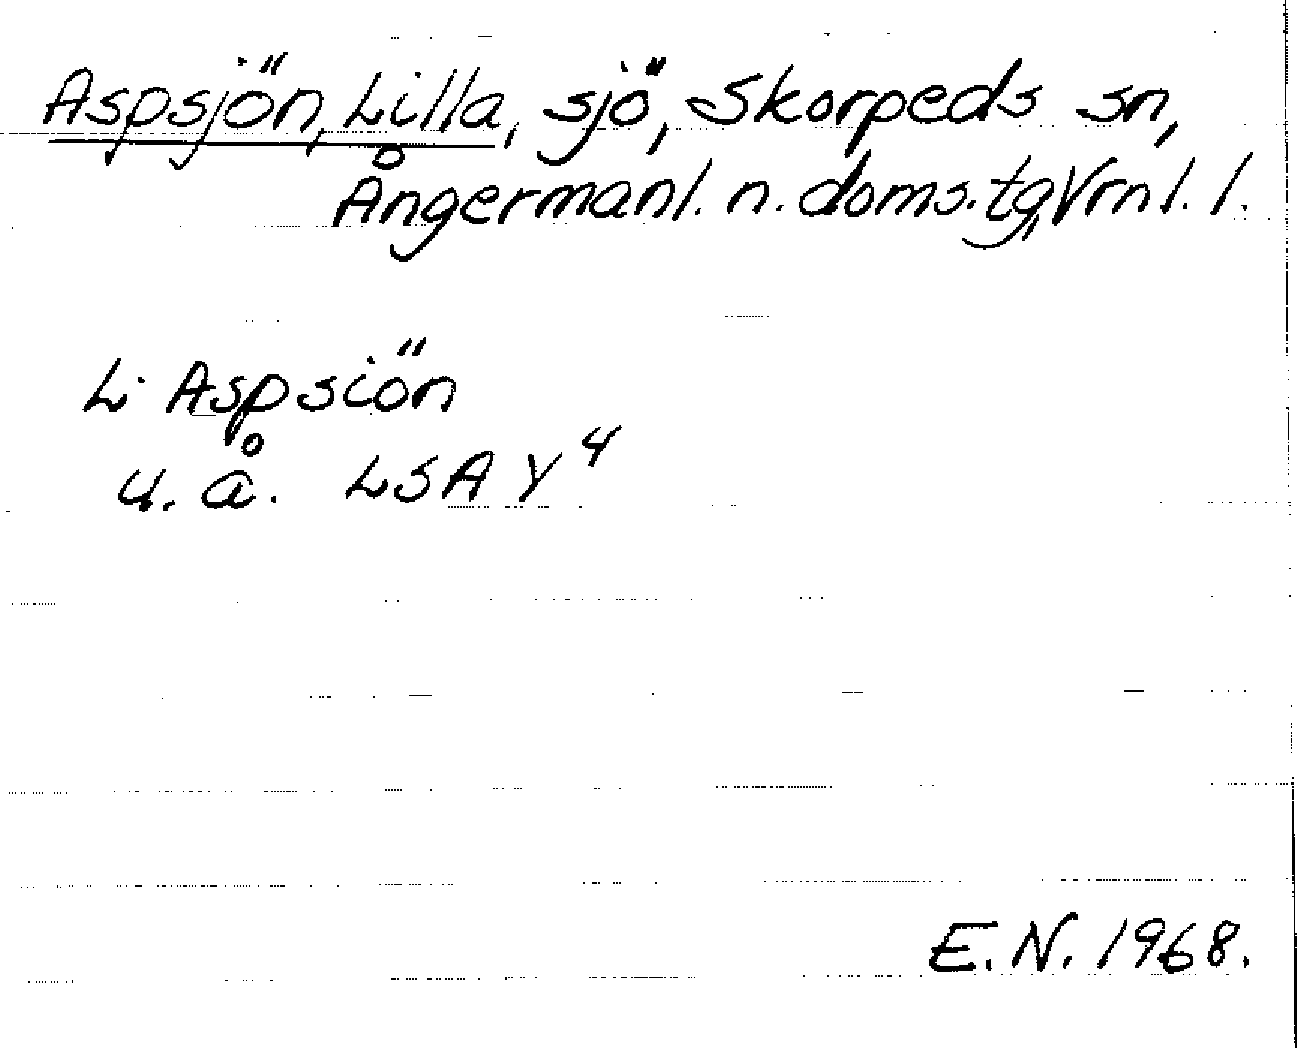 Aspsjön, Lilla, sjö, Skorpeds sn,
Ångermanl. n. doms. tg, Vrnl. l.
L. Aspsiön
u. å. LSA Y4
E. N. 1968.